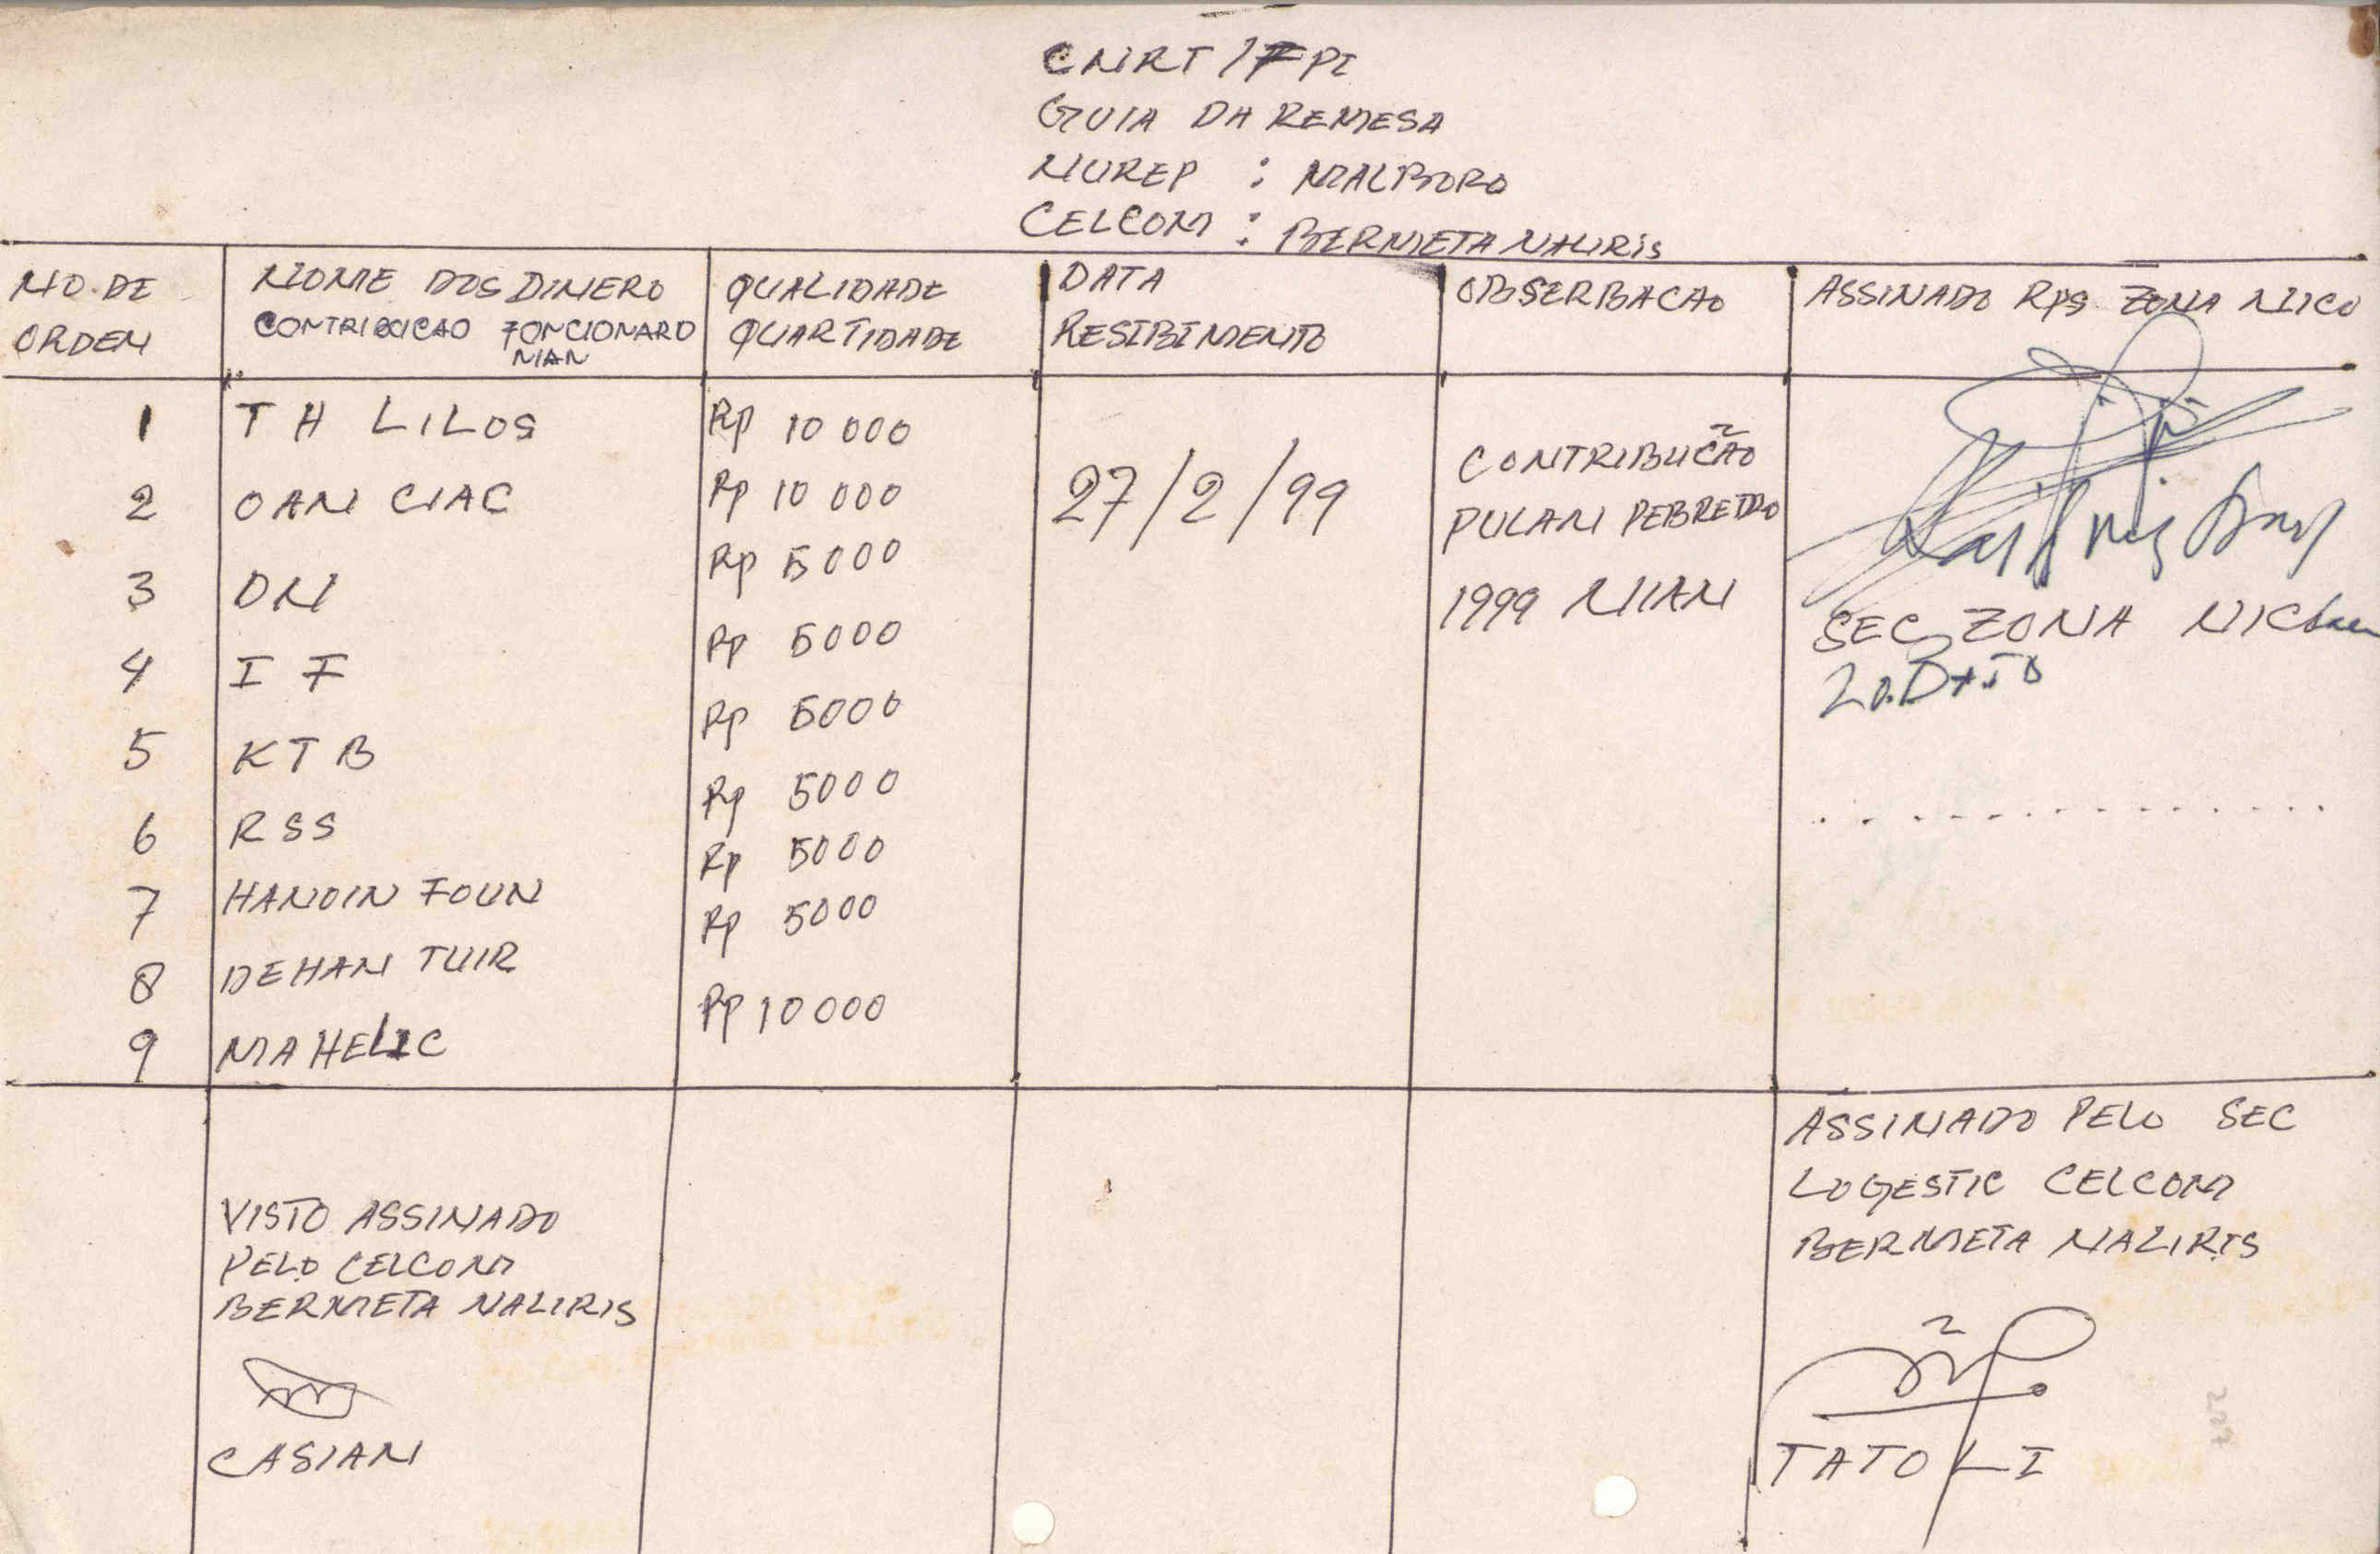 CNRT / FPI
GUIA DA REMESA
NUREP : MALBORO
CELCOM : BERMETA NALIRIS
NO. DE ORDEN
NOME DOS DINERO
CONTRIBUICAO FONCIONARO
MAN
QUALIDADE
QUARTIDADE
DATA
RESIBIMENTO
OBSERBACAO
ASSINADO RPS ZONA
1 TH LILOS Rp 10 000
2 OAN CIAC Rp 10 000
3 ON Rp 5000
4 I F Rp 5000
5 KTB Rp 5000
6 RSS Rp 5000
7 HANOIN FOUN Rp 5000
8 DEHAN TUIR Rp 5000
9 MAHELIC Rp 10 000
27/2/99
CONTRIBUCÃO
PULAN PEBRERO
1999
SEC ZONA
VISTO ASSINADO
PELO CELCOM
BERMETA NALIRIS
CASIAN
ASSINADO PELO SEC
LOGESTIC CELCOM
BERMETA NALIRIS
TATOLI